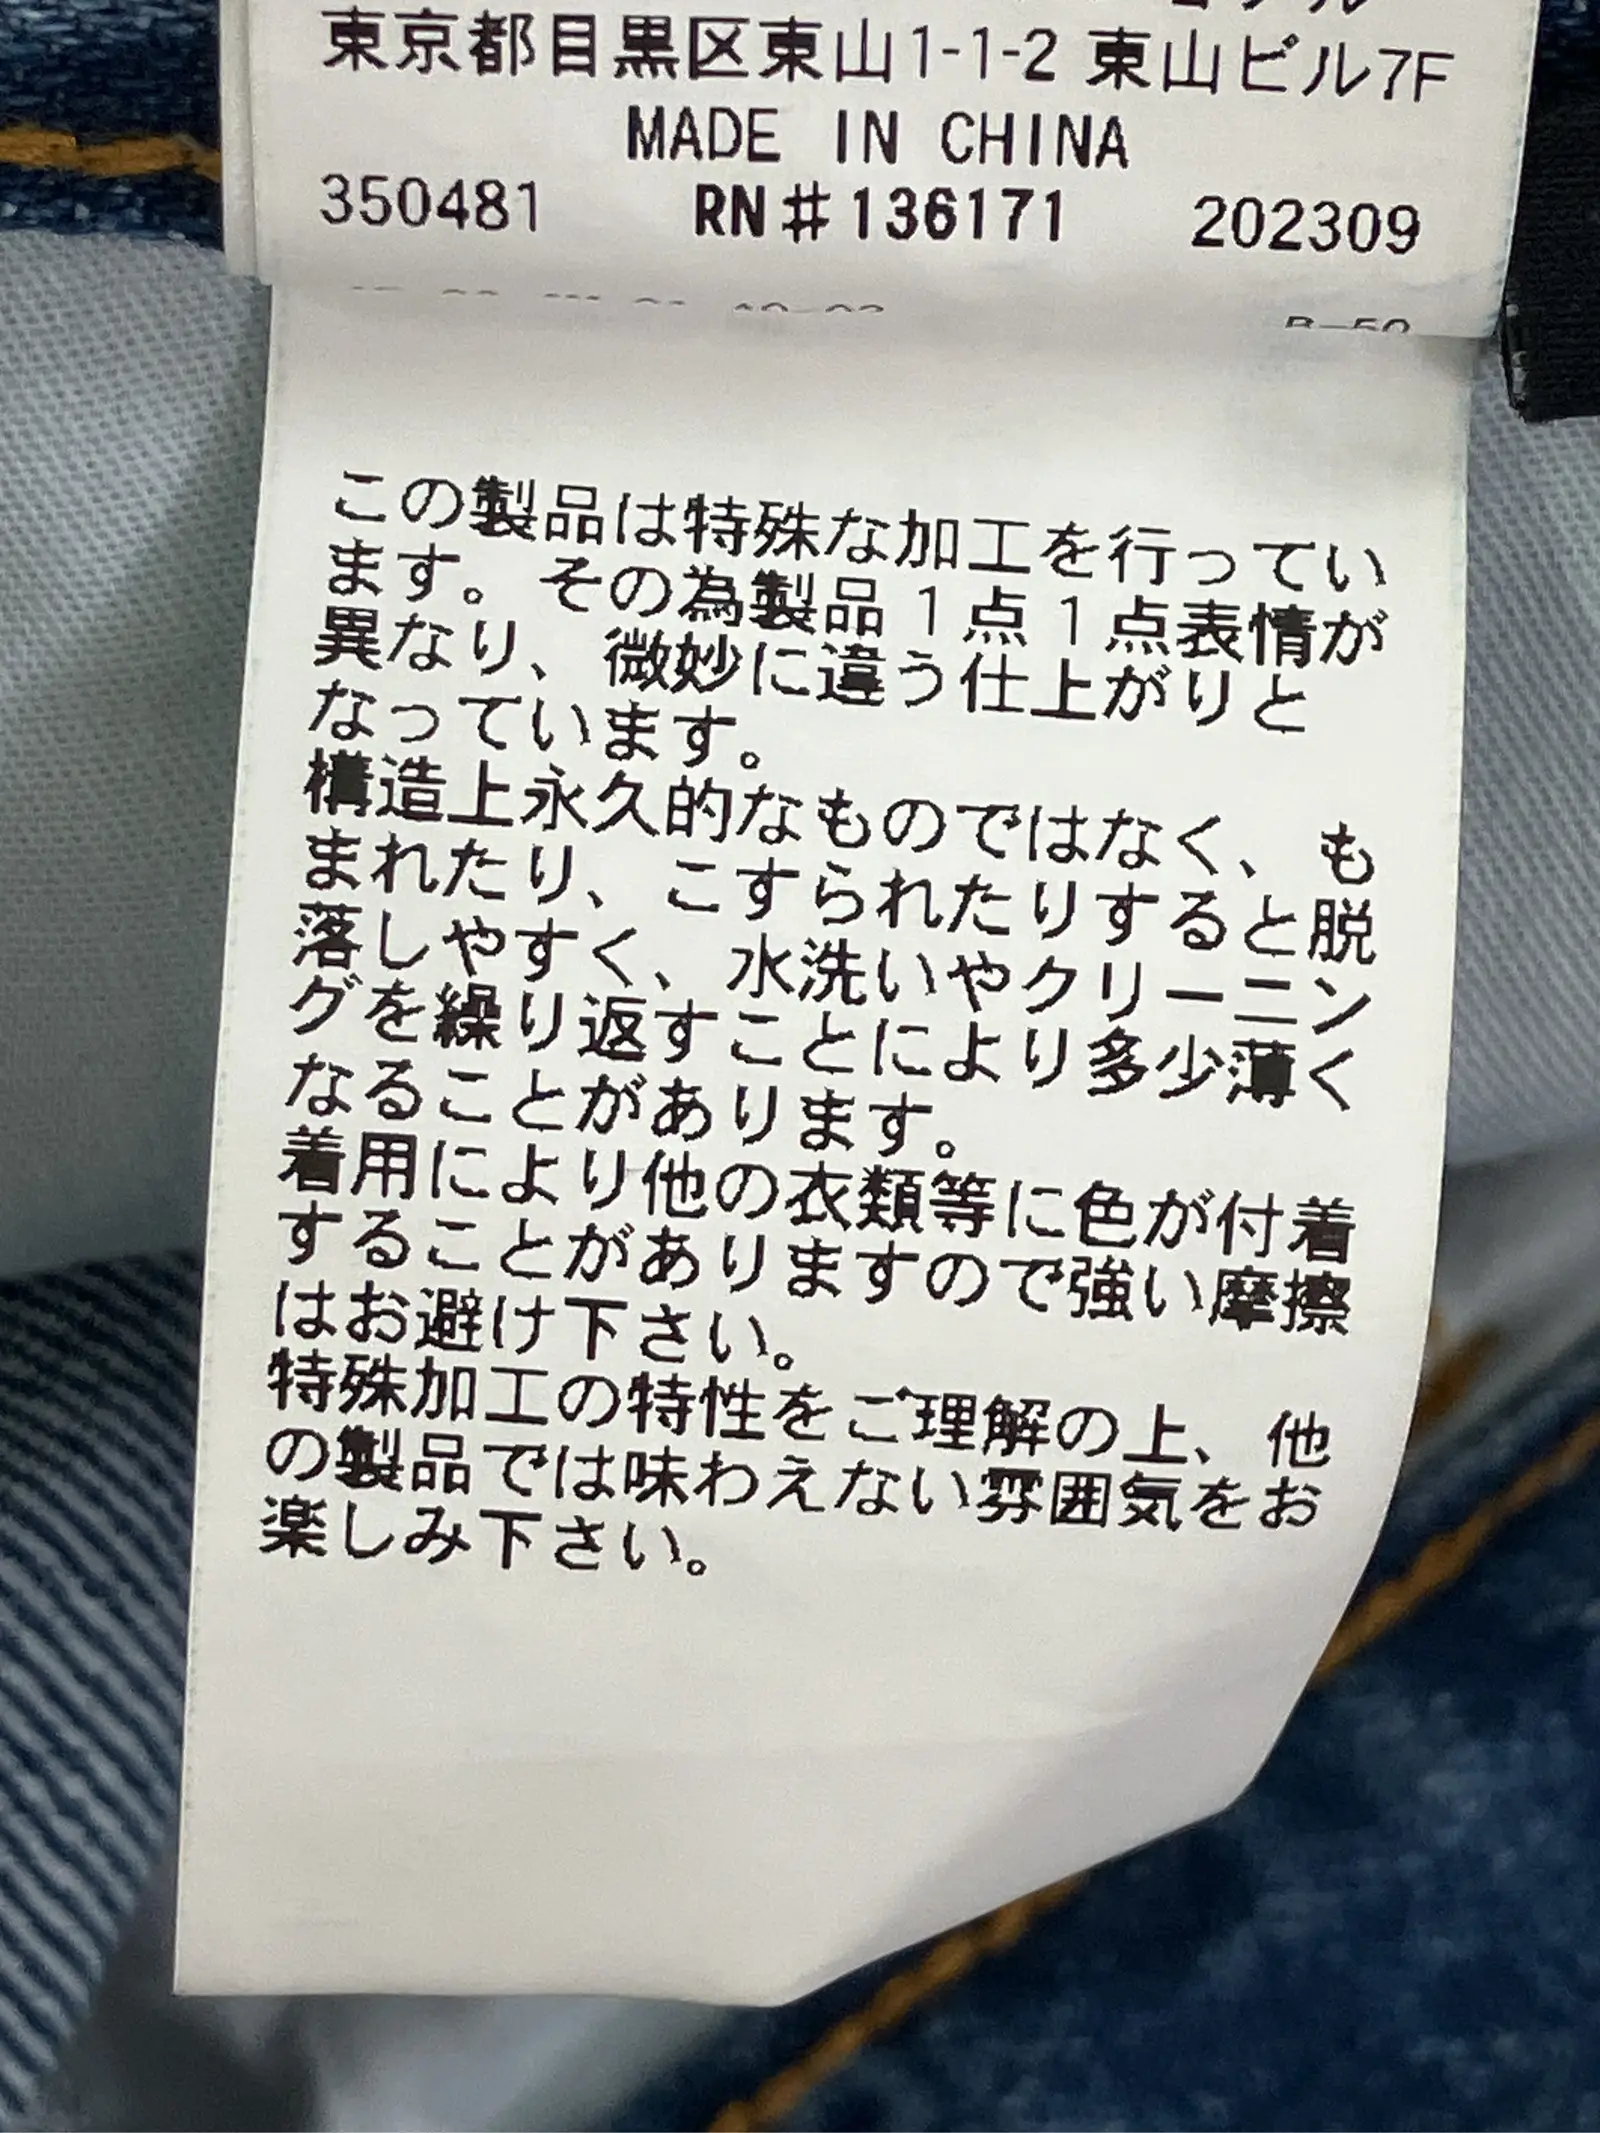 東京都目黒区東山1-1-2 東山ビル7F
MADE IN CHINA
350481 RN#136171 202309
この製品は特殊な加工を行ってい
ます。その為製品1点1点表情が
異なり、微妙に違う仕上がりと
なっています。
構造上永久的なものではなく、も
まれたり、こすられたりすると脱
落しやすく、水洗いやクリーニン
グを繰り返すことにより多少薄く
なることがあります。
着用により他の衣類等に色が付着
することがありますので強い摩擦
はお避け下さい。
特殊加工の特性をご理解の上、他
の製品では味わえない雰囲気をお
楽しみ下さい。